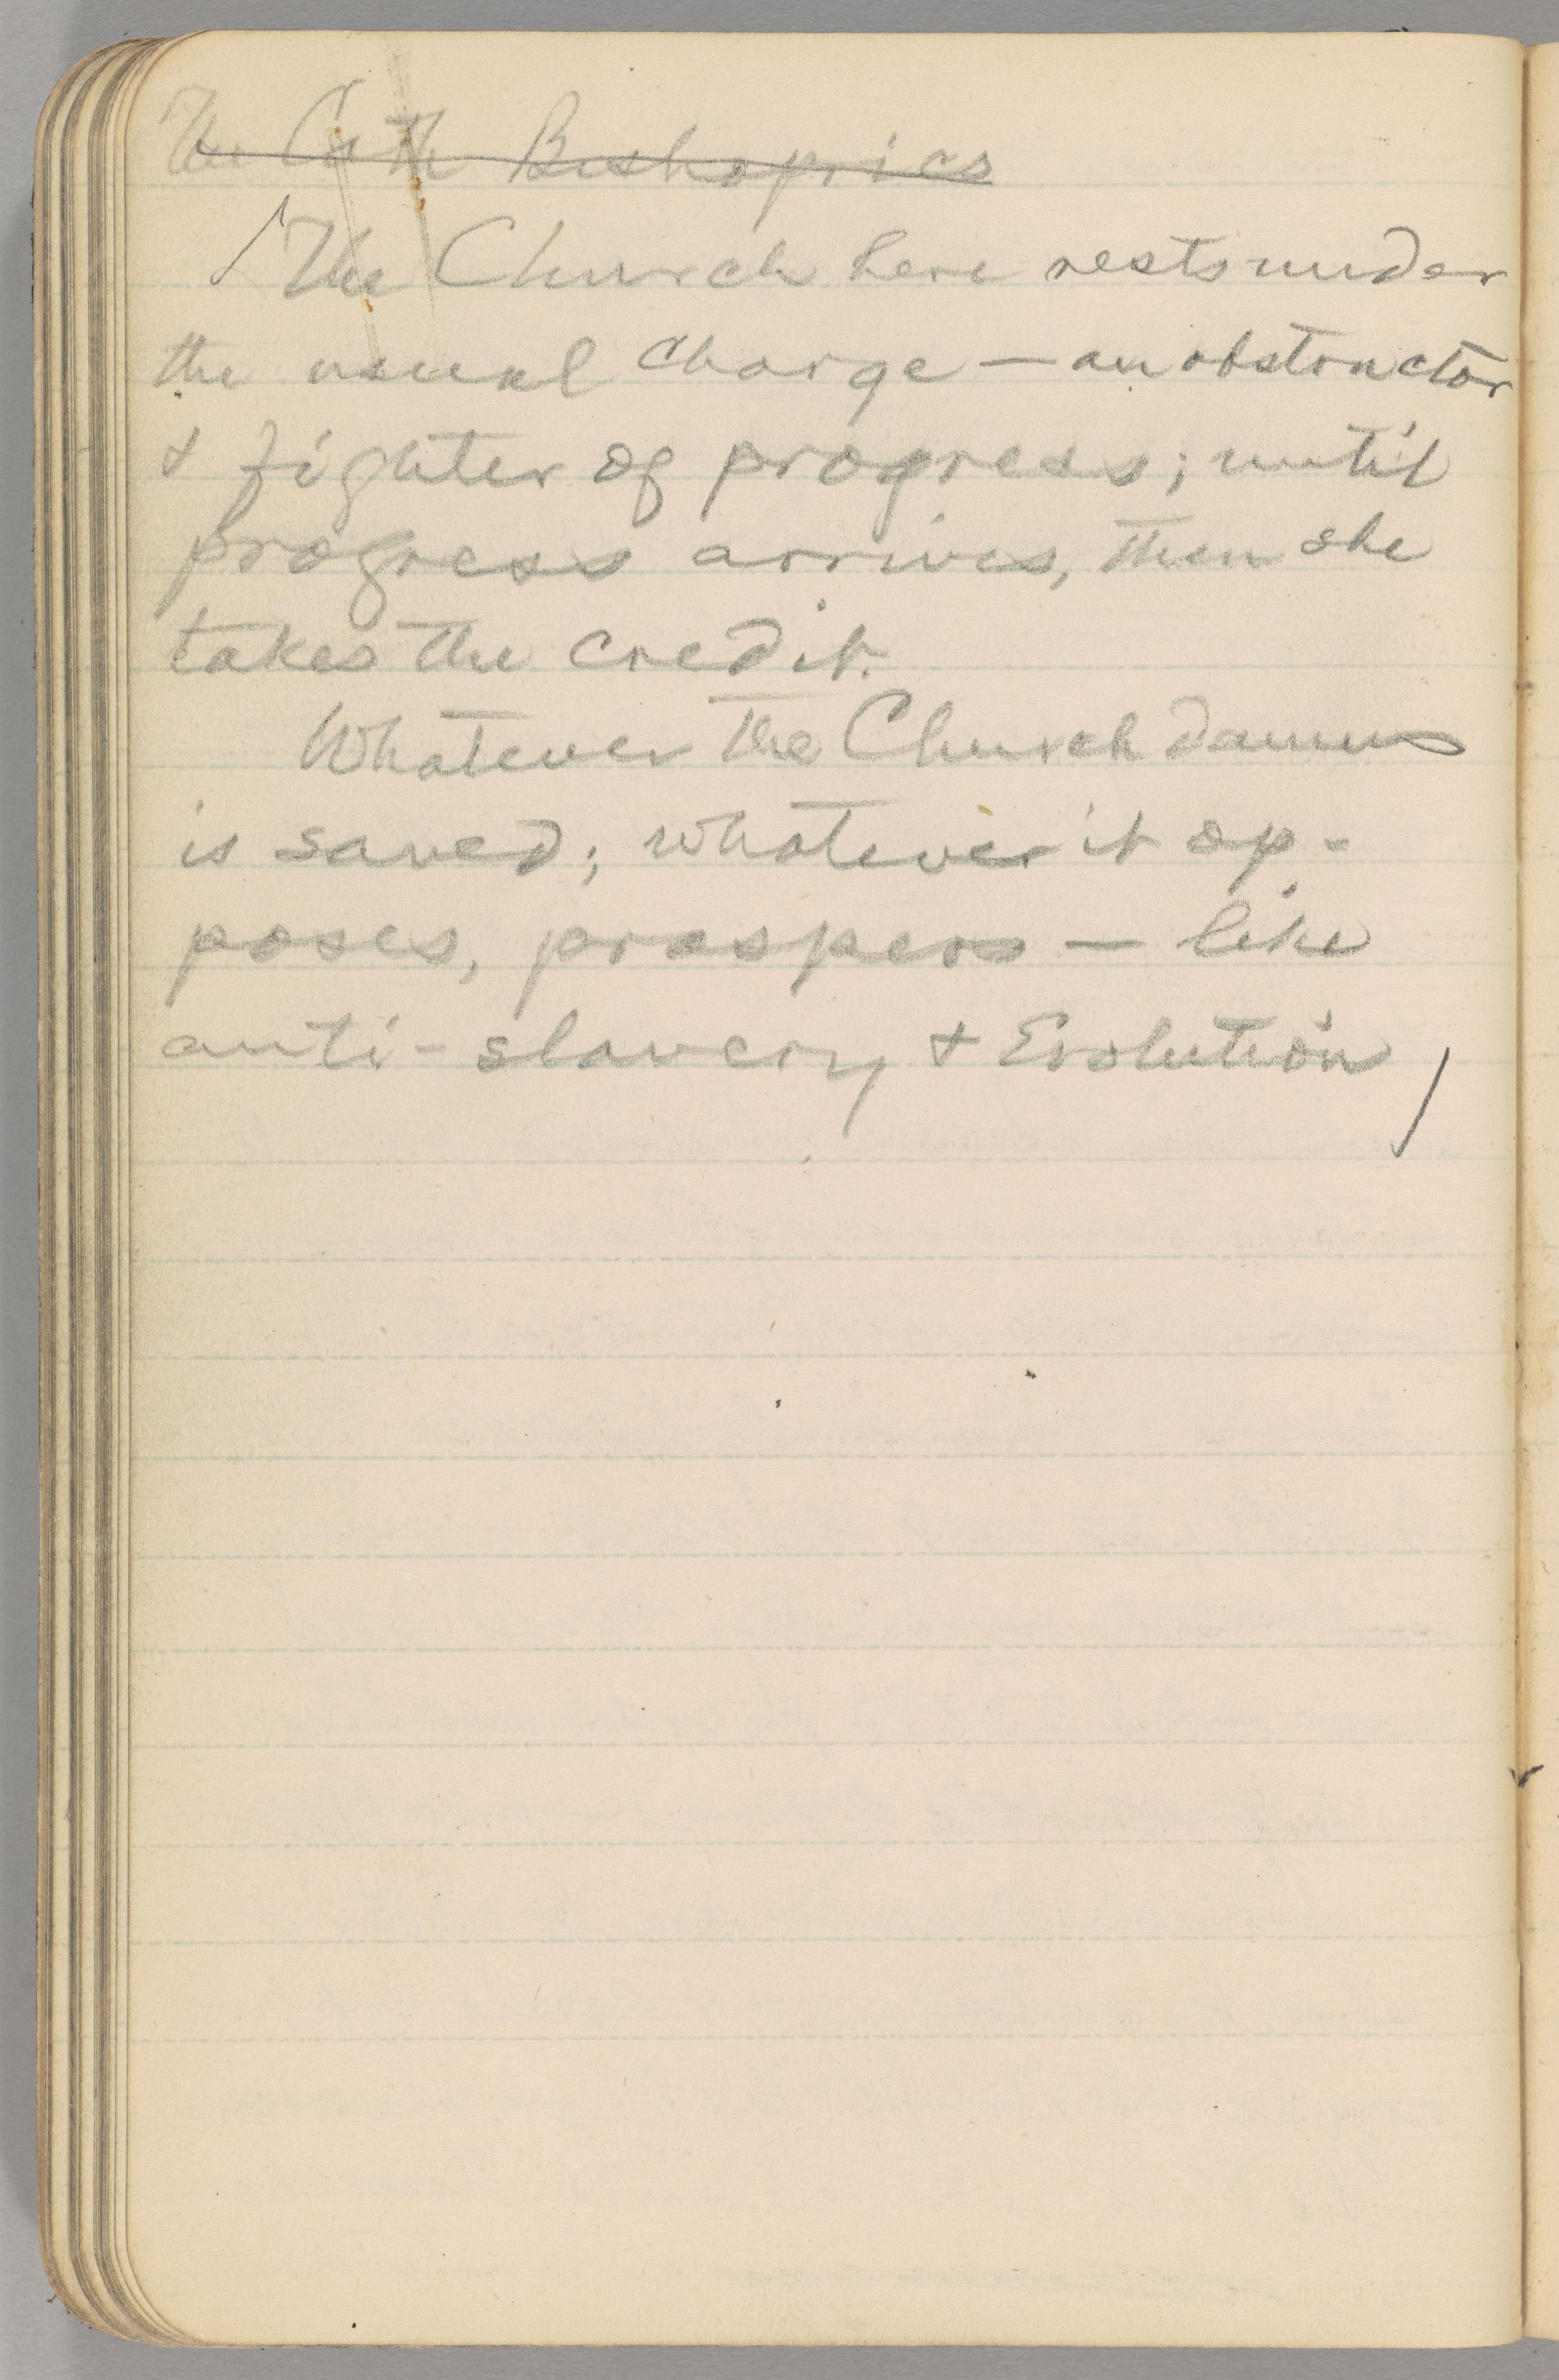 The Cath Bishoprics
The Church here rests under
the usual charge — an obstructor
& fighter of progress; until
progress arrives, then she
takes the credit.
Whatever the Church damns
is saved; whatever it op-
poses, prospers — like
anti-slavery & Evolution